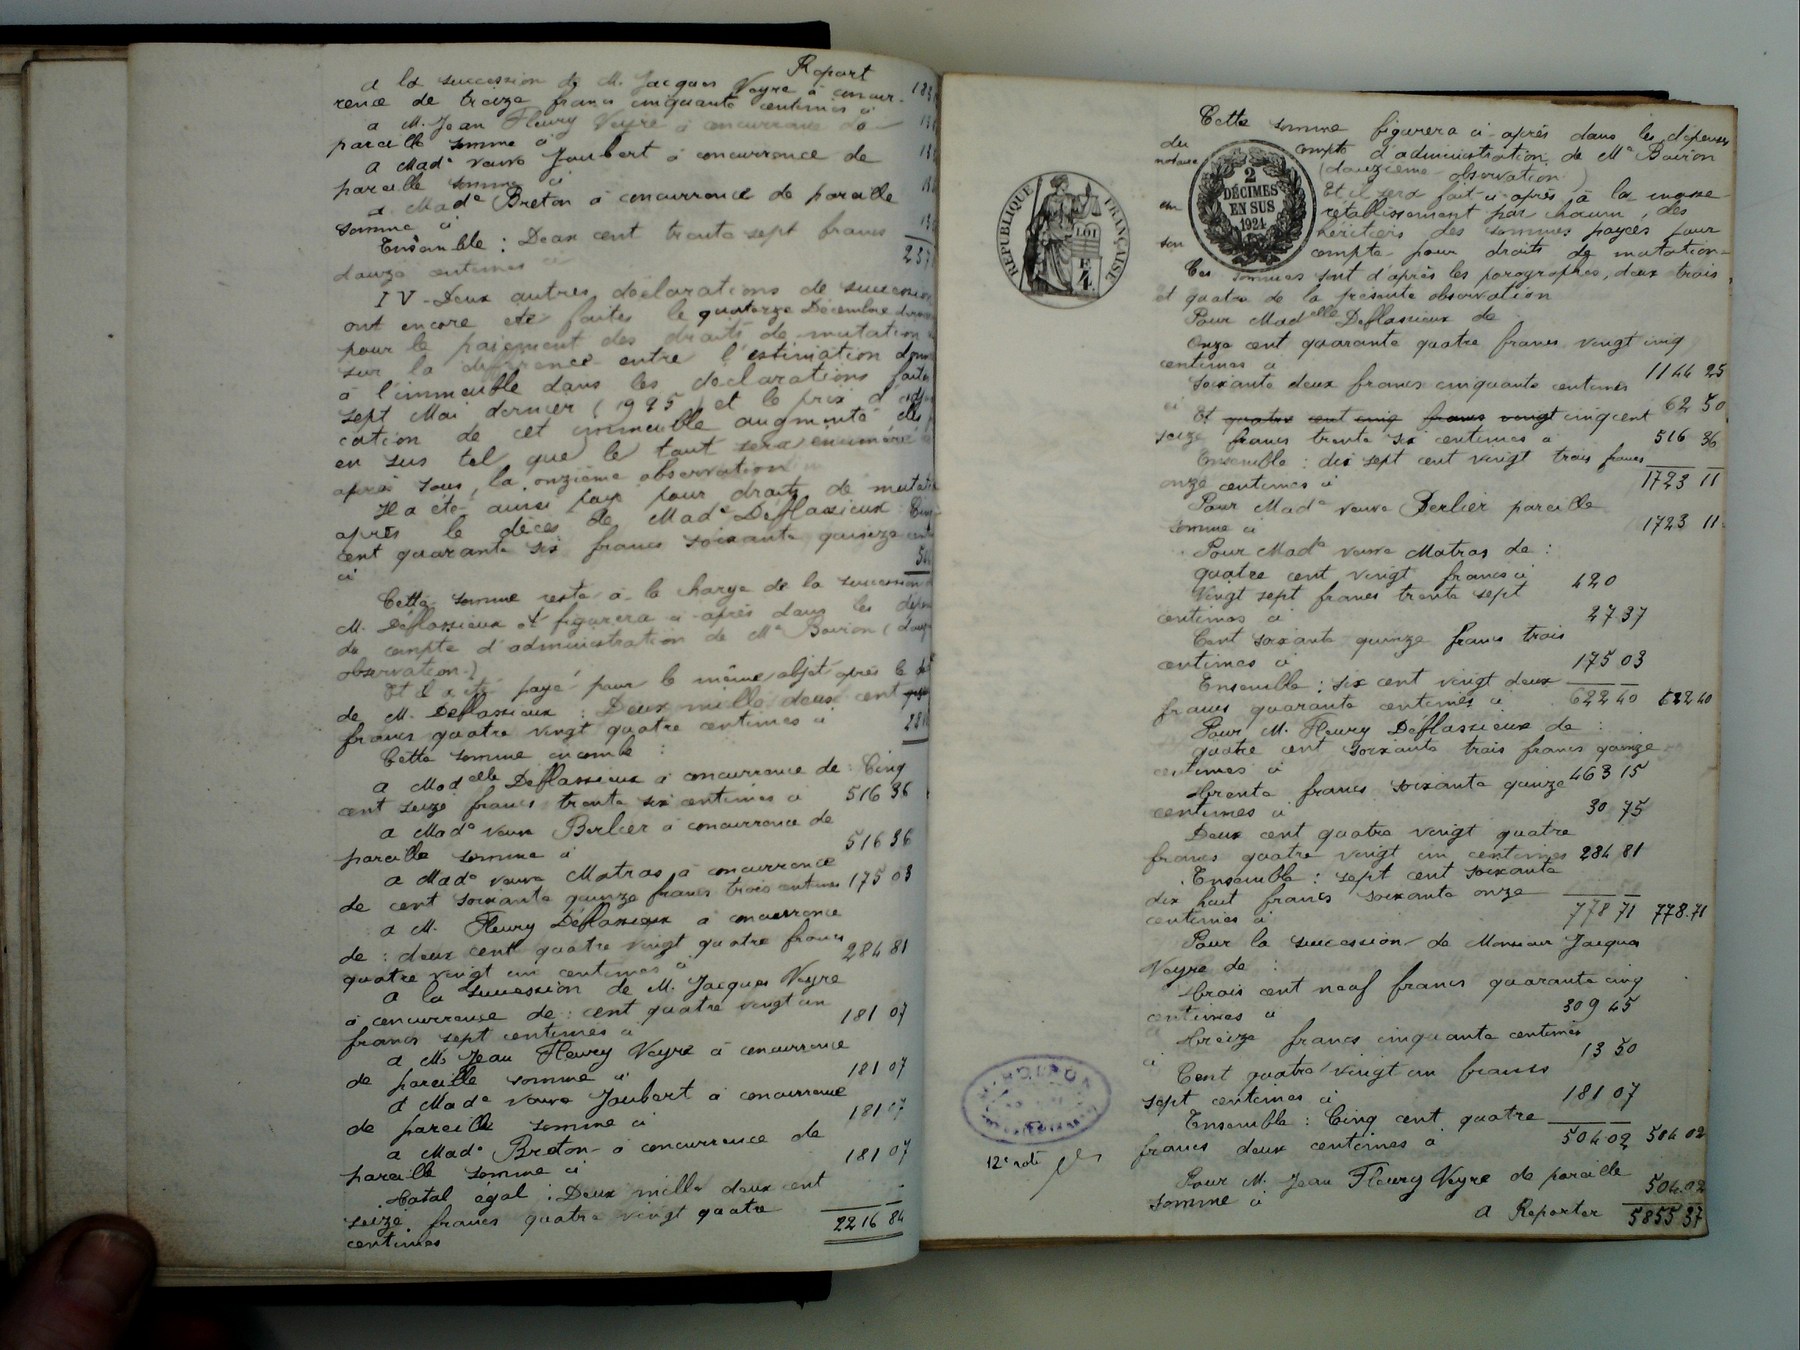 Report
à la succession de M. Jacques Veyre à concur-
rence de treize francs cinquante centimes ci
à M. Jean Fleury Veyre à concurrence de
pareille somme ci
à Made veuve Joubert à concurrence de
pareille somme ci
à Made Breton à concurrence de pareille
somme ci
Ensemble : Deux cent trente sept francs
douze centimes ci 237
IV - Deux autres déclarations de succession
ont encore été faites le quatorze Décembre dernier
pour le paiement des droits de mutation
sur la différence entre l'estimation donnée
à l'immeuble dans les déclarations faites
sept Mai dernier (1925) et le prix d'adju
cation de cet immeuble augmenté des
en sus tel que le tout sera énuméré
après sous la onzième observation
Il a été ainsi payé pour droits de mutation
après le décès de Made Deflassieux : Cinq
cent quarante six francs soixante quinze
ci
Cette somme reste à la charge de la succession
M. Deflassieux et figurera ci-après dans les
du compte d'administration de Me Boiron (
observation.)
Et il a été payé pour le même objet après le
de M. Deflassieux : Deux mille deux cent
francs quatre vingt quatre centimes ci
Cette somme incombe :
à Madelle Deflassieux à concurrence de : Cinq
cent seize francs trente six centimes ci 516 36
à Made veuve Berlier à concurrence de
pareille somme ci 516 36
à Made veuve Matras à concurrence
de cent soixante quinze francs trois centimes 175 03
à M. Fleury Déflassieux à concurrence
de : deux cent quatre vingt quatre francs
quatre vingt un centimes ci 284 81
à la succession de M. Jacques Veyre
à concurrence de : cent quatre vingt un
francs sept centimes ci 181 07
à M. Jean Fleury Veyre à concurrence
de pareille somme ci 181 07
à Made veuve Joubert à concurrence
de pareille somme ci 181 07
à Made Breton à concurrence de
pareille somme ci 181 07
Total égal : Deux mille deux cent
seize francs quatre vingt quatre
centimes 2216 84
RÉPUBLIQUE FRANÇAISE
LOI
F
4.
2
DÉCIMES
EN SUS
1921
Cette somme figurera ci-après dans les dépenses
du compte d'administration de Me Boiron
notaire (douzième observation)
Et il sera fait ci-après à la masse
en rétablissement par chacun des
héritiers des sommes payées pour
son compte pour droits de mutation
Ces sommes sont d'après les paragraphes, deux trois
et quatre de la présente observation
Pour Madelle Deflassieux de
Onze cent quarante quatre francs vingt cinq
centimes ci 1144 25
Soixante deux francs cinquante centimes
ci 62 50
Et quatre cent cinq francs vingt cinq cent
seize francs trente six centimes ci 516 36
Ensemble : dix sept cent vingt trois francs
onze centimes ci 1723 11
Pour Made veuve Berlier pareille
somme ci 1723 11
Pour Made veuve Matras de :
quatre cent vingt francs ci 420
Vingt sept francs trente sept
centimes ci 27 37
Cent soixante quinze francs trois
centimes ci 175 03
Ensemble : six cent vingt deux
francs quarante centimes ci 622 40 622 40
Pour M. Fleury Déflassieux de :
quatre cent soixante trois francs quinze
centimes ci 463 15
Trente francs soixante quinze
centimes ci 30 75
Deux cent quatre vingt quatre
francs quatre vingt un centimes 284 81
Ensemble : sept cent soixante
dix huit francs soixante onze
centimes ci 778 71 778.71
Pour la succession de Monsieur Jacques
Veyre de :
Trois cent neuf francs quarante cinq
centimes ci 309 45
Treize francs cinquante centimes
ci 13 50
Cent quatre vingt un francs
sept centimes ci 181 07
Ensemble : Cinq cent quatre
francs deux centimes ci 504 02 504 02
12e rôle
Pour M. Jean Fleury Veyre de pareille
somme ci 504.02
A Reporter 5855 37